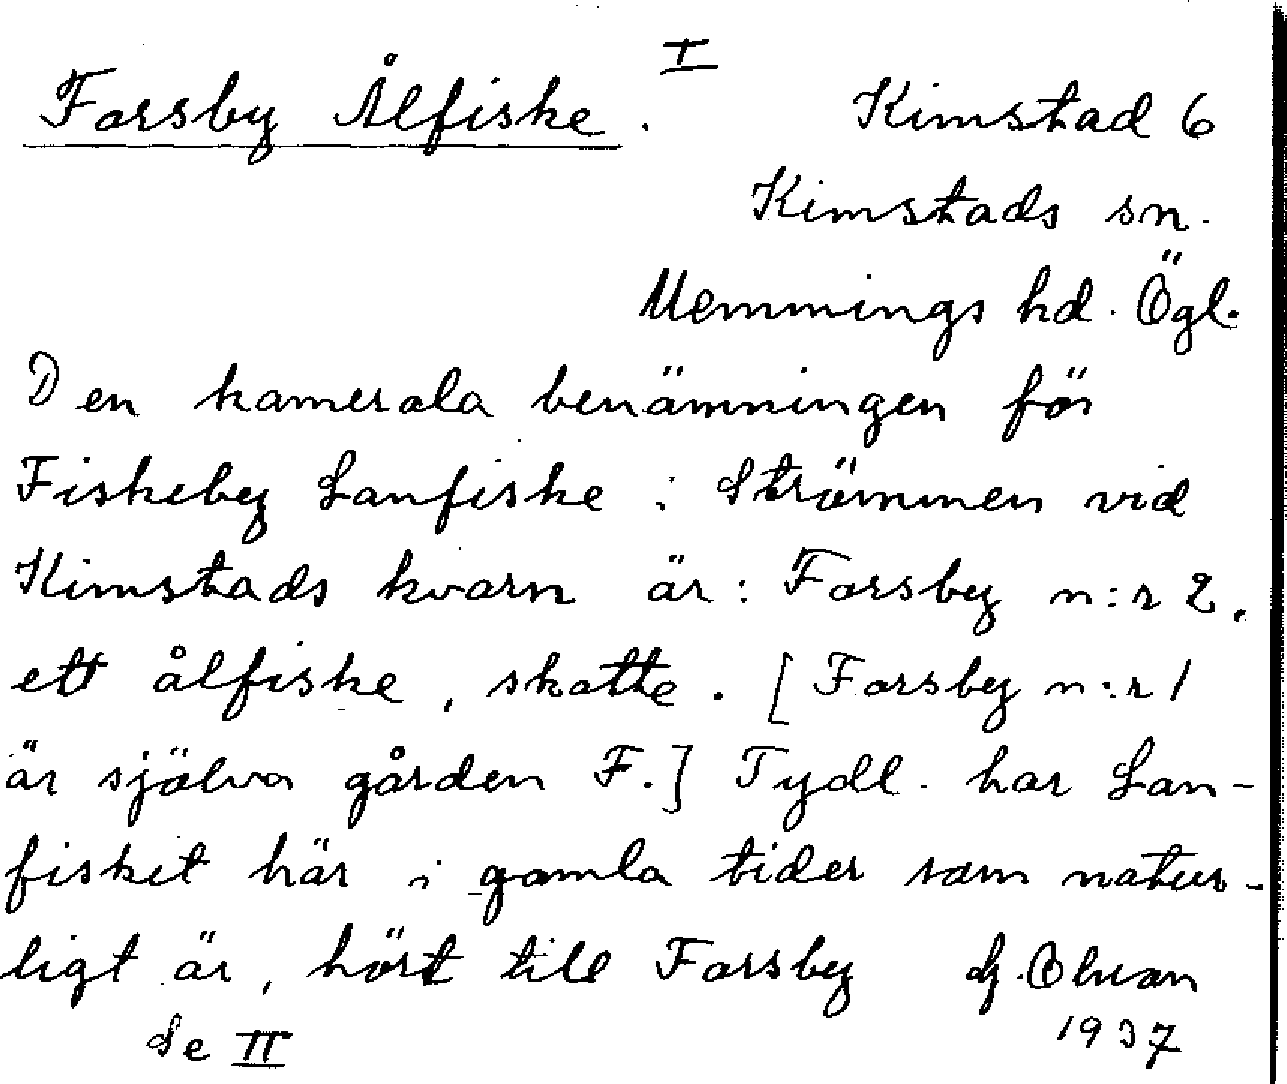 Forsby Ålfiske. I
Kimstad 6
Kimstads sn.
Memmings hd. Ögl.
Den kamerala benämningen för
Fiskeby Lanfiske i Strömmen vid
Kimstads kvarn är: Forsby n:r 2,
ett ålfiske, skatte. [Forsby n:r 1
är själva gården F.] Tydl. har Lan-
fisket här i gamla tider som natur-
ligt är, hört till Forsby
Se II 1937